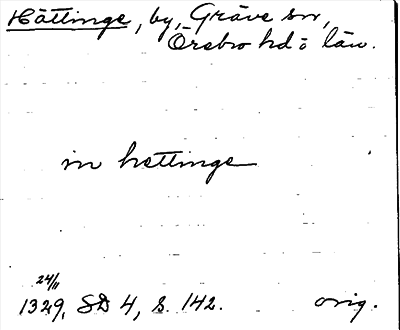 Hättinge, by, Gräve sn,
Örebro hd o län.
in hettinge
24/11
1329, SD 4, s. 142. orig.